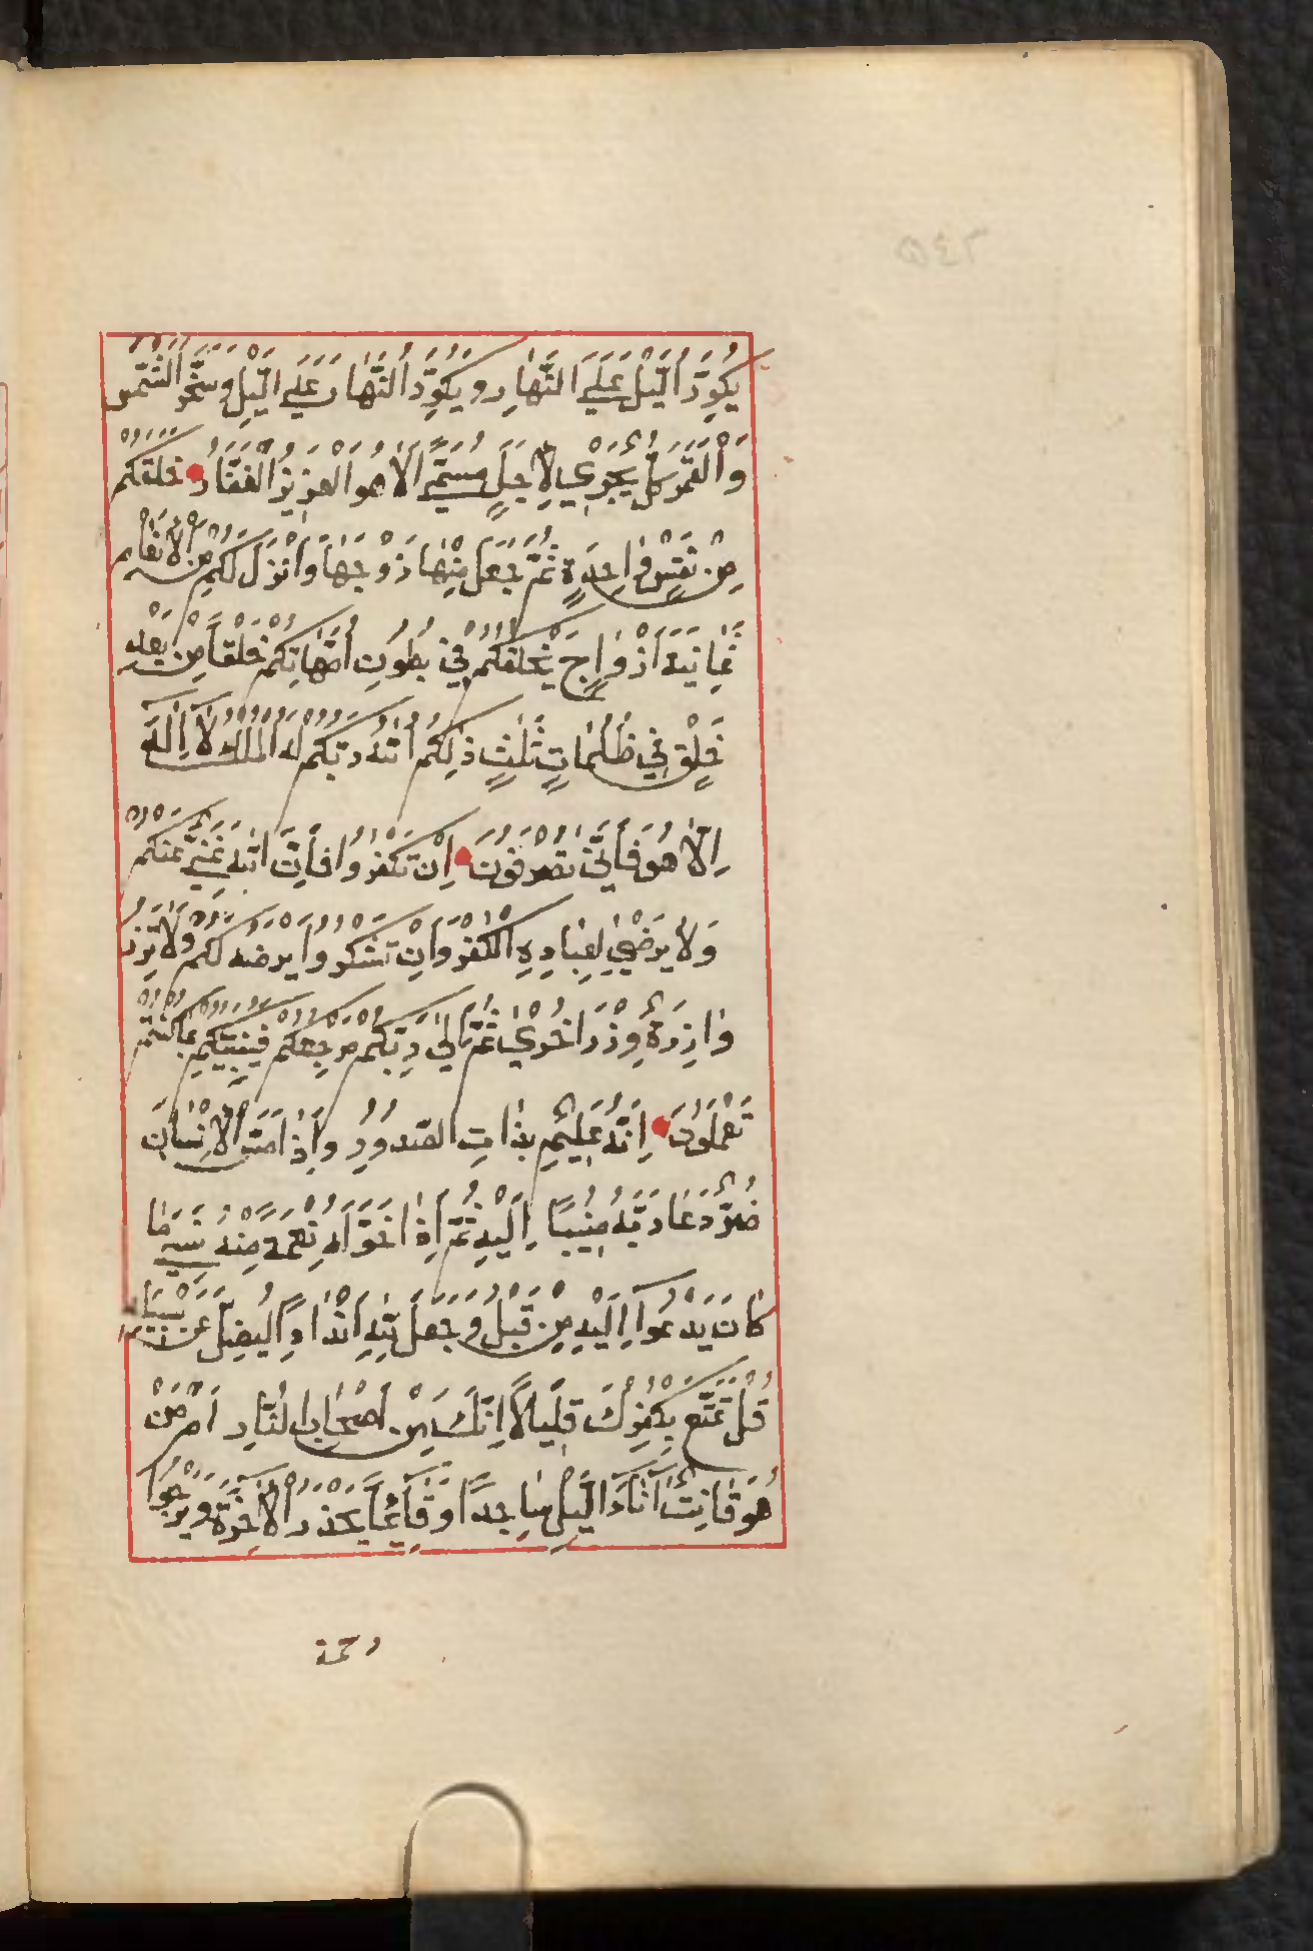 ٦٤٥
يُكَوِّرُ الَّيْلَ عَلَي النَّهَارِ وَيُكَوِّرُ النَّهَارَ عَلَي الَّيْلِ وَسَخَّرَ الشَّمْسَ
وَالْقَمَرَ كُلٌّ يَجْرِي لِاَجَلٍ مُسَمًّي اَلَا هُوَ الْعَزِيزُ الْغَفَّارُ خَلَقَكُمْ
مِنْ نَفْسٍ وَاحِدَةٍ ثُمَّ جَعَلَ مِنْهَا زَوْجَهَا وَاَنْزَلَ لَكُمْ مِنَ الْاَنْعَامِ
ثَمَانِيَةَ اَزْوَاجٍ يَخْلُقُكُمْ فِي بُطُونِ اُمَّهَاتِكُمْ خَلْقًا مِنْ بَعْدِ
خَلْقٍ فِي ظُلُمَاتٍ ثَلٰثٍ ذٰلِكُمُ اللّٰهُ رَبُّكُمْ لَهُ الْمُلْكُ لَا اِلٰهَ
اِلَّا هُوَ فَاَنّٰي تُصْرَفُونَ اِنْ تَكْفُرُوا فَاِنَّ اللّٰهَ غَنِيٌّ عَنْكُمْ
وَلَا يَرْضٰي لِعِبَادِهِ الْكُفْرَ وَاِنْ تَشْكُرُوا يَرْضَهُ لَكُمْ وَلَا تَزِرُ
وَازِرَةٌ وِزْرَ اُخْرٰي ثُمَّ اِلٰي رَبِّكُمْ مَرْجِعُكُمْ فَيُنَبِّئُكُمْ بِمَا كُنْتُمْ
تَعْمَلُونَ اِنَّهُ عَلِيمٌ بِذَاتِ الصُّدُورِ وَاِذَا مَسَّ الْاِنْسَانَ
ضُرٌّ دَعَا رَبَّهُ مُنِيبًا اِلَيْهِ ثُمَّ اِذَا خَوَّلَهُ نِعْمَةً مِنْهُ نَسِيَ مَا
كَانَ يَدْعُوا اِلَيْهِ مِنْ قَبْلُ وَجَعَلَ لِلّٰهِ اَنْدَادًا لِيُضِلَّ عَنْ سَبِيلِهِ
قُلْ تَمَتَّعْ بِكُفْرِكَ قَلِيلًا اِنَّكَ مِنْ اَصْحَابِ النَّارِ اَمَّنْ
هُوَ قَانِتٌ اٰنَاءَ الَّيْلِ سَاجِدًا وَقَائِمًا يَحْذَرُ الْاٰخِرَةَ وَيَرْجُوا
رحمة